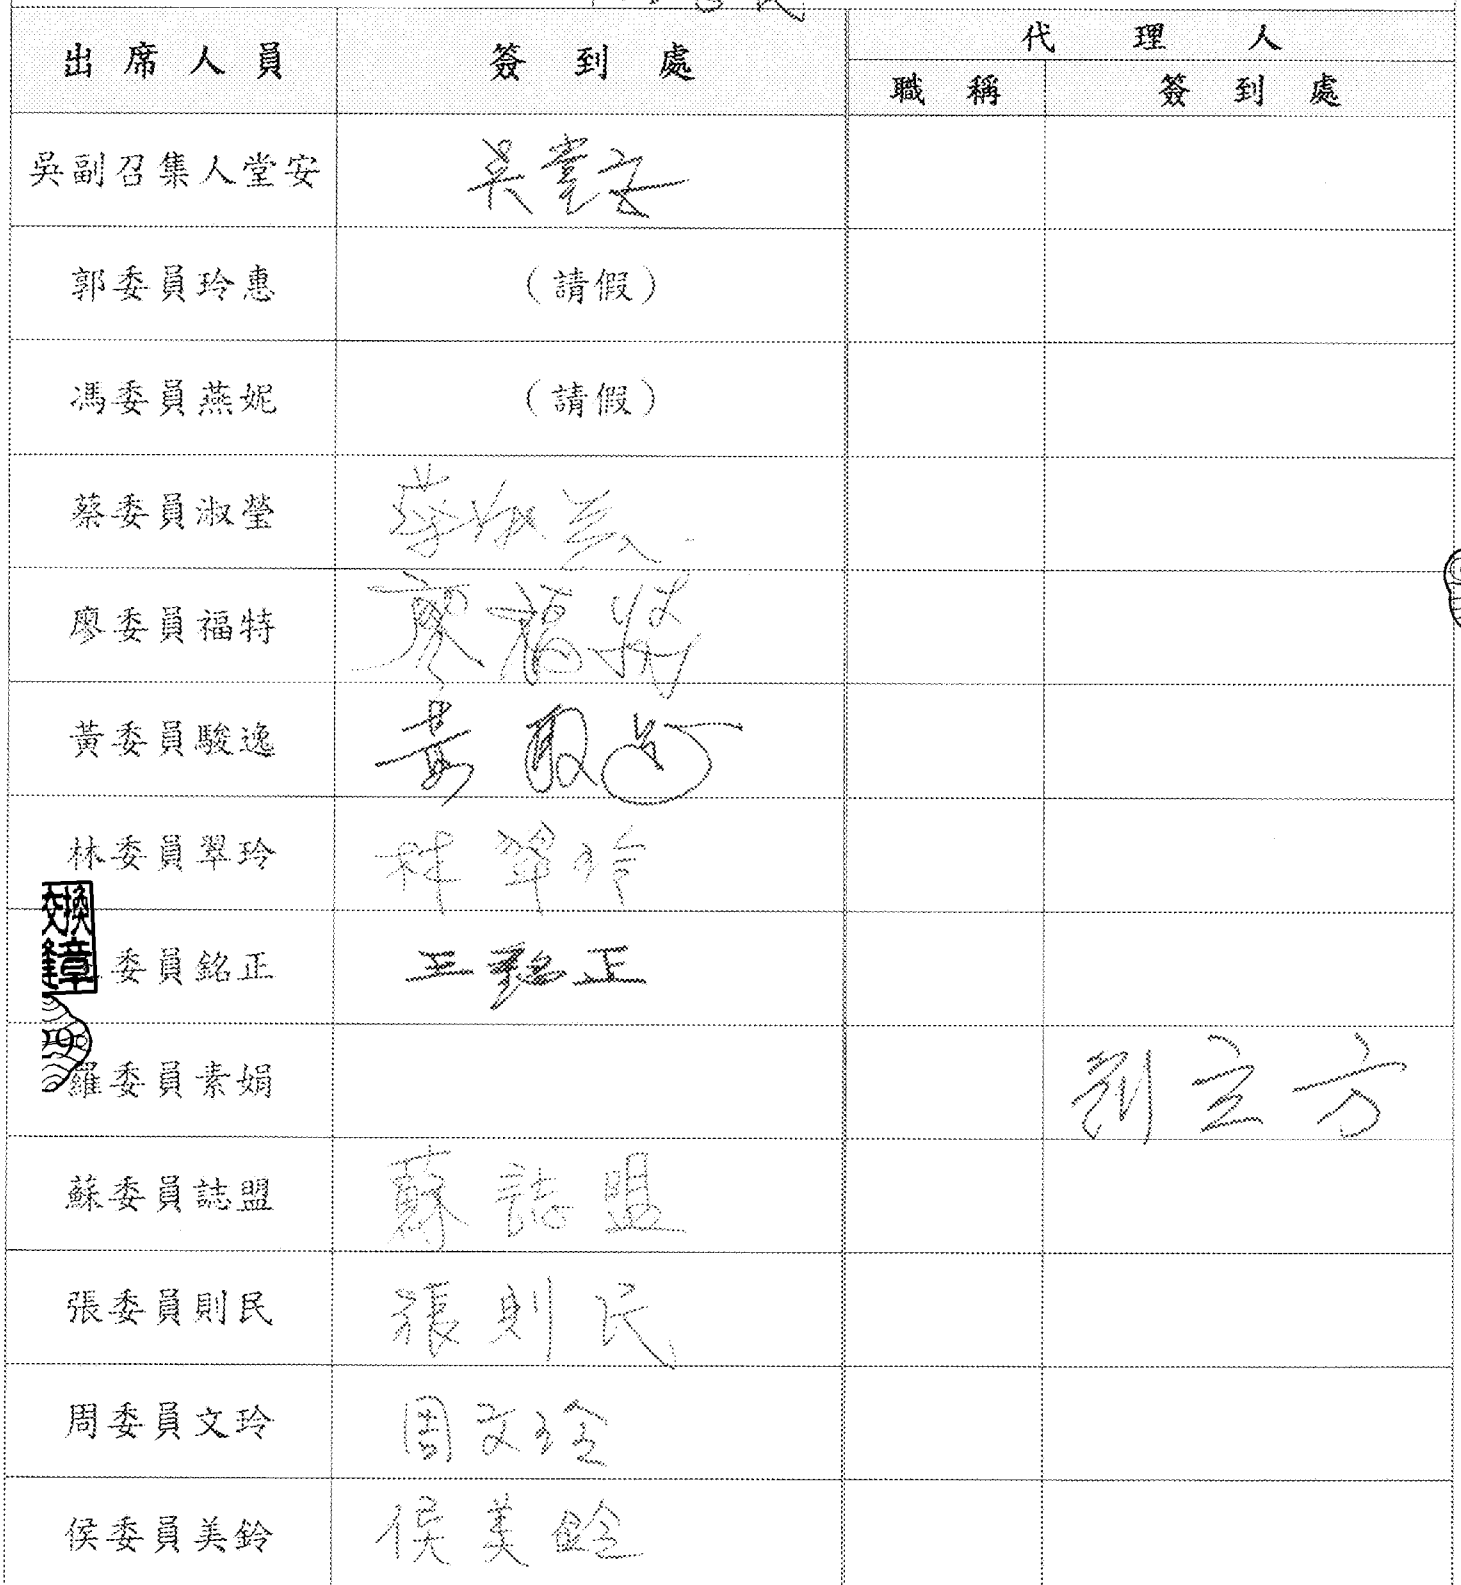 出席人員 簽到處 代理人
職稱 簽到處
吳副召集人堂安 吳堂安
郭委員玲惠 （請假）
馮委員燕妮 （請假）
蔡委員淑瑩 蔡淑瑩
廖委員福特 廖福特
黃委員駿逸 黃駿逸
林委員翠玲 林翠玲
委員銘正 王銘正
羅委員素娟 劉立方
蘇委員誌盟 蘇誌盟
張委員則民 張則民
周委員文玲 周文玲
侯委員美鈴 侯美鈴
交換
章